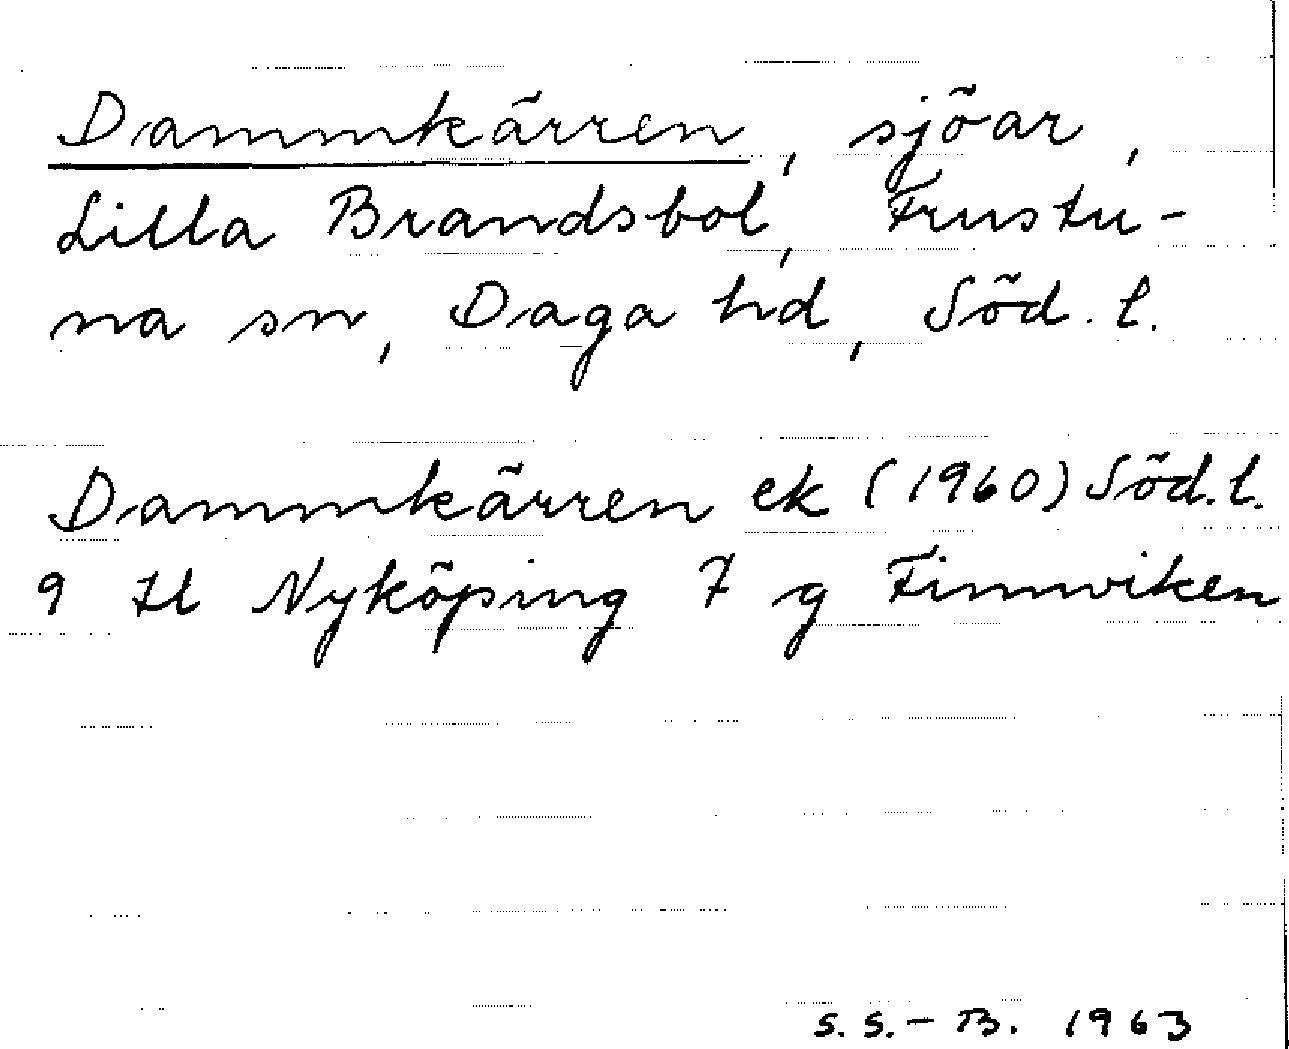 Dammkärren, sjöar,
Lilla Brandsbol, Frustu-
na sn, Daga hd, Söd. l.
Dammkärren ek (1960) Söd. l.
9 H Nyköping 7 g Finnviken
S. S. - B. 1963